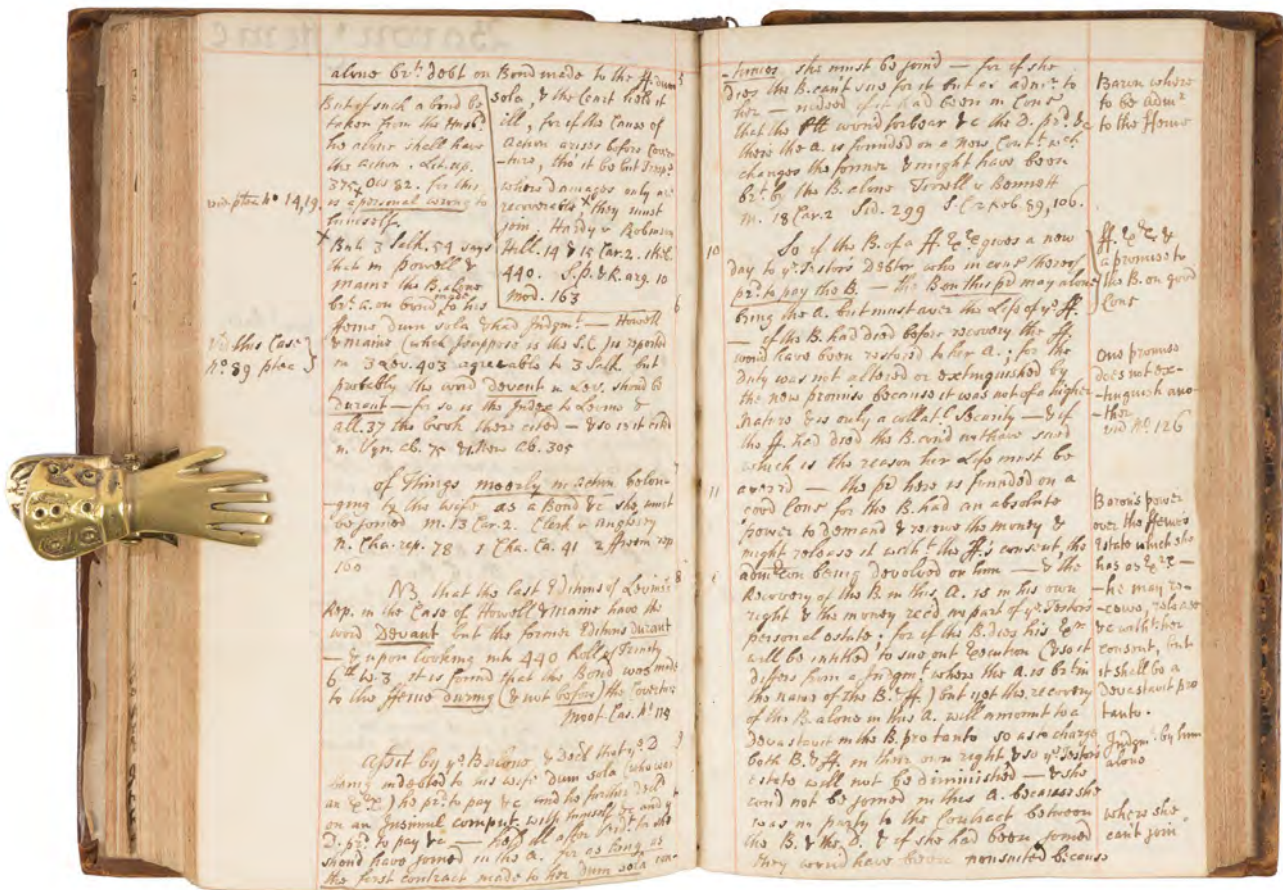 alone brt. debt on Bond made to the ff. dum
sola, & the Court held it
ill, for if the Cause of
Action arises before Cover
-ture, tho' it be but
where damages only are
recoverable, they must
join. Hardy v Robinson
Hill. 14 & 15 Car. 2. 1 Keb.
440. S.P. & R. arg. 10
mod. 163
5
But if such a bond be
taken from the Husbd.
he alone shall have
the Action. Lit. rep.
375 + Ow 82. for this
is a personal wrong to
himself.
vid ptea No 14, 19.
+ But 3 Salk. 54 says
that in powell &
maine the B. alone
brt. a. on bond made to his
6
feme dum sola & had Judgmt. — Howell
& maine (which I suppose is the S.C.) is reported
in 3 Lev. 403 agreeable to 3 Salk. but
probably the word devant in Lev. should be
durant — for so is the Index to Levins &
all. 37 the book there cited — & so is it cited
in Vyn. Ab. 75 & New Ab. 305
Vid this Case
No. 89 ptea
7
of Things meerly in Action belon-
-ging to the wife as a Bond &c she must
be joined m. 13 Car. 2. Clerk v Anglesey
n. Cha. rep. 78 1 Cha. Ca. 41 2 ffreem rep
160
8
NB. that the last Editions of Levins's
Rep. in the Case of Howell & maine have the
word Devant but the former Editions durant
— & upon looking into 440 Roll of Trinity
6th W. 3. it is found that the Bond was made
to the ffeme during (& not before) the Coverture
moot. Cas. No 114
9
Assst by ye B. alone & Decl. that ye D.
being indebted to his wife Dum sola (who was
an Exx) he pr. to pay &c and he further decl.
on an Insimul comput. with himself &c and yt
D. pr. to pay &c — held ill after Verdt. for she
should have joined in the a. for as long as
the first contract made to her dum sola con-
-tinues she must be join'd — for if she
dies the B. can't sue for it but as admr. to
her — indeed if it had been in Cons.
that the Plt would forbear &c the D. pr. &c
there the a. is founded on a new Contrt. wch.
changes the former & might have been
brt. by the B. alone Tirrell v Bennett
m. 18 Car. 2 Sid. 299 S.C. 2 Keb 89, 106.
Baron where
to be admr
to the ffeme
10
So if the B. of a ff. Exx gives a new
day to ye Testors Debtor who in cons. thereof
pr. to pay the B. — the B. on this pr. may alone
bring the a. but must aver the Life of ye ff.
— if the B. had died before recovery the ff.
would have been restored to her a.; for the
duty was not altered or extinguished by
the new promise because it was not of a higher
nature & is only a collatl. Security — & if
the ff. had died the B. cou'd not have sued
which is the reason her Life must be
averr'd — the pr. here is founded on a
ff. Exx &
a promise to
the B. on good
Cons
One promise
does not ex-
-tinguish ano-
-ther
vid No. 126
11
good Cons. for the B. had an absolute
power to demand & receive the money &
might release it witht. the ff.'s consent, the
admcon being devolved on him — & the
Recovery of the B. in this a. is in his own
right & the money recd. no part of ye Testors
personal estate: for if the B. dies his Exr.
will be intitled to sue out Execution (& so it
differs from a Judgmt. where the a. is brt. in
the name of the B. & ff.) but yet the recovery
of the B. alone in this a. will amount to a
Devastavit in the B. pro tanto so as to charge
both B. & ff. in their own right & so ye Testors
estate will not be diminished — & she
coud not be joined in this a. because she
was no party to the Contract between
the B. & the D. & if she had been joined
they would have been nonsuited because
Baron's power
over the ffeme's
Estate which she
has as Exx —
— he may re-
-ceive, release
&c witht. her
consent, but
it shall be a
Devastavit pro
tanto.
Judgmt. by him
alone
where she
can't join.